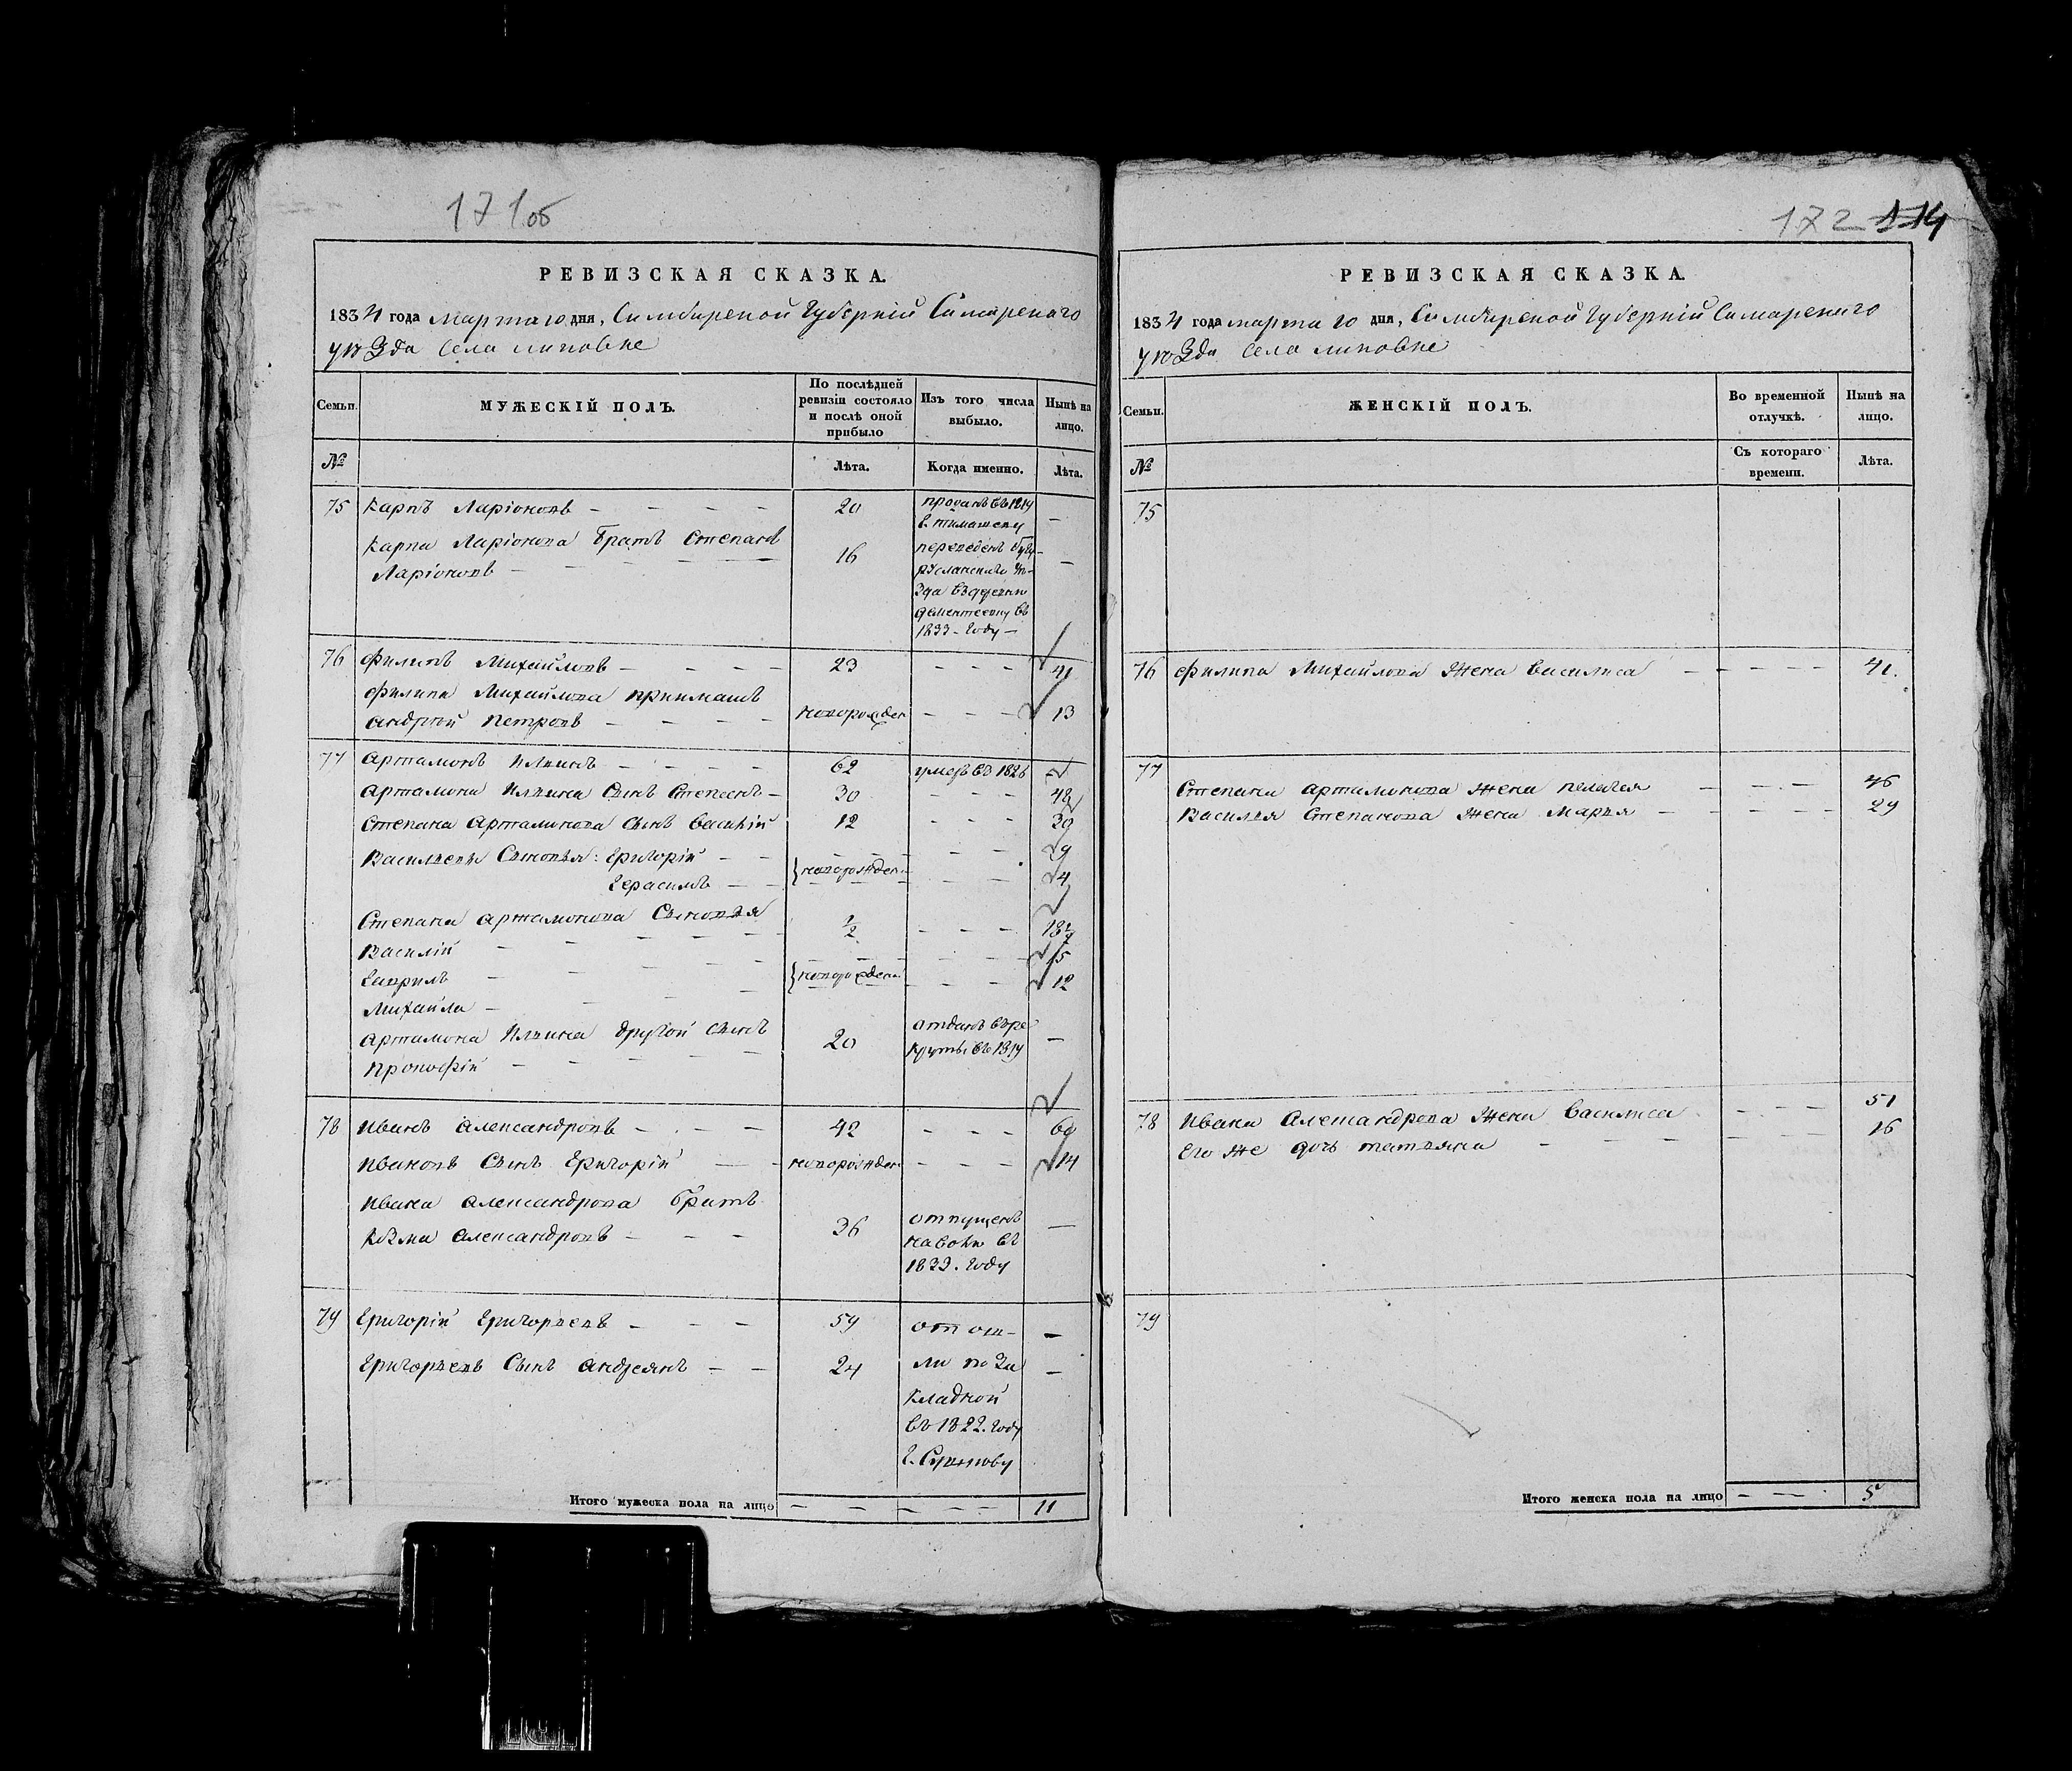 171об
РЕВИЗСКАЯ СКАЗКА.
1834 года марта 10 дня, Симбирской Губерніи Самарскаго
уѣзда села липовке
Семьи.
МУЖЕСКІЙ ПОЛЪ.
По послѣдней ревизіи состояло и послѣ оной прибыло
Изъ того числа выбыло.
Нынѣ на лицо.
№
Лѣта.
Когда именно.
Лѣта.
75 Карпъ Ларіоновъ — — — — 20 проданъ въ 1819 —
Карпа Ларіонова братъ Степанъ
Ларіоновъ — — — — 16 переведенъ бугу-
русланскаго уѣ-
зда въ
въ
1833 - году — —
76 Филипъ Михайловъ — — — — 23 — — — 41
Филипа Михайлова приимашъ
андрѣй Петровъ — — — — новорожден — — — 13
77 артамонъ Ильинъ — — — — 62 умеръ въ 1826 —
артамона Ильина Сынъ Степанъ — 30 — — — 48
Степана Артамонова сынъ Василій 12 — — — 30
Васильевы Сыновья: Григорій — — } новорожден — — — 9
Герасимъ — — — — — 4
Степана артамонова Сыновья
Василій — — — — — ½ — — — 18½
Гаврилъ — — — — } новорожден — — — 15
Михайла — — — — — — — 12
артамона Ильина другой сынъ
Прокофій — — — — 20 отданъ въ ре
круты въ 1819 —
78 Иванъ Александровъ — — — 42 — — — 60
Ивановъ Сынъ Григорій — — новорожден — — — 14
Ивана александрова братъ
Козма александровъ — — — 36 отпущенъ
на волю въ
1833. году —
79 Григорій Григорьевъ — — — 59 отош- —
Григорьевъ Сынъ андреянъ — — 24 ли по за —
кладной
въ 1822. году
Итого мужеска пола на лицо — — — — — 11
172 114
РЕВИЗСКАЯ СКАЗКА.
1834 года марта 10 дня, Симбирской Губерніи Самарскаго
уѣзда села липовке
Семьи.
ЖЕНСКІЙ ПОЛЪ.
Во временной отлучкѣ.
Нынѣ на лицо.
№
Съ котораго времени.
Лѣта.
75
76 Филипа Михайлова жена Василиса — — — — — 41.
77
Степана артамонова жена пелагея — — — — 46
Василья Степанова жена Марья — — — — — 29
78 Ивана Александрова жена Василиса — — — 51
Его же дочь татьяна — — — — — — 16
79
Итого женска пола на лицо — — — 5